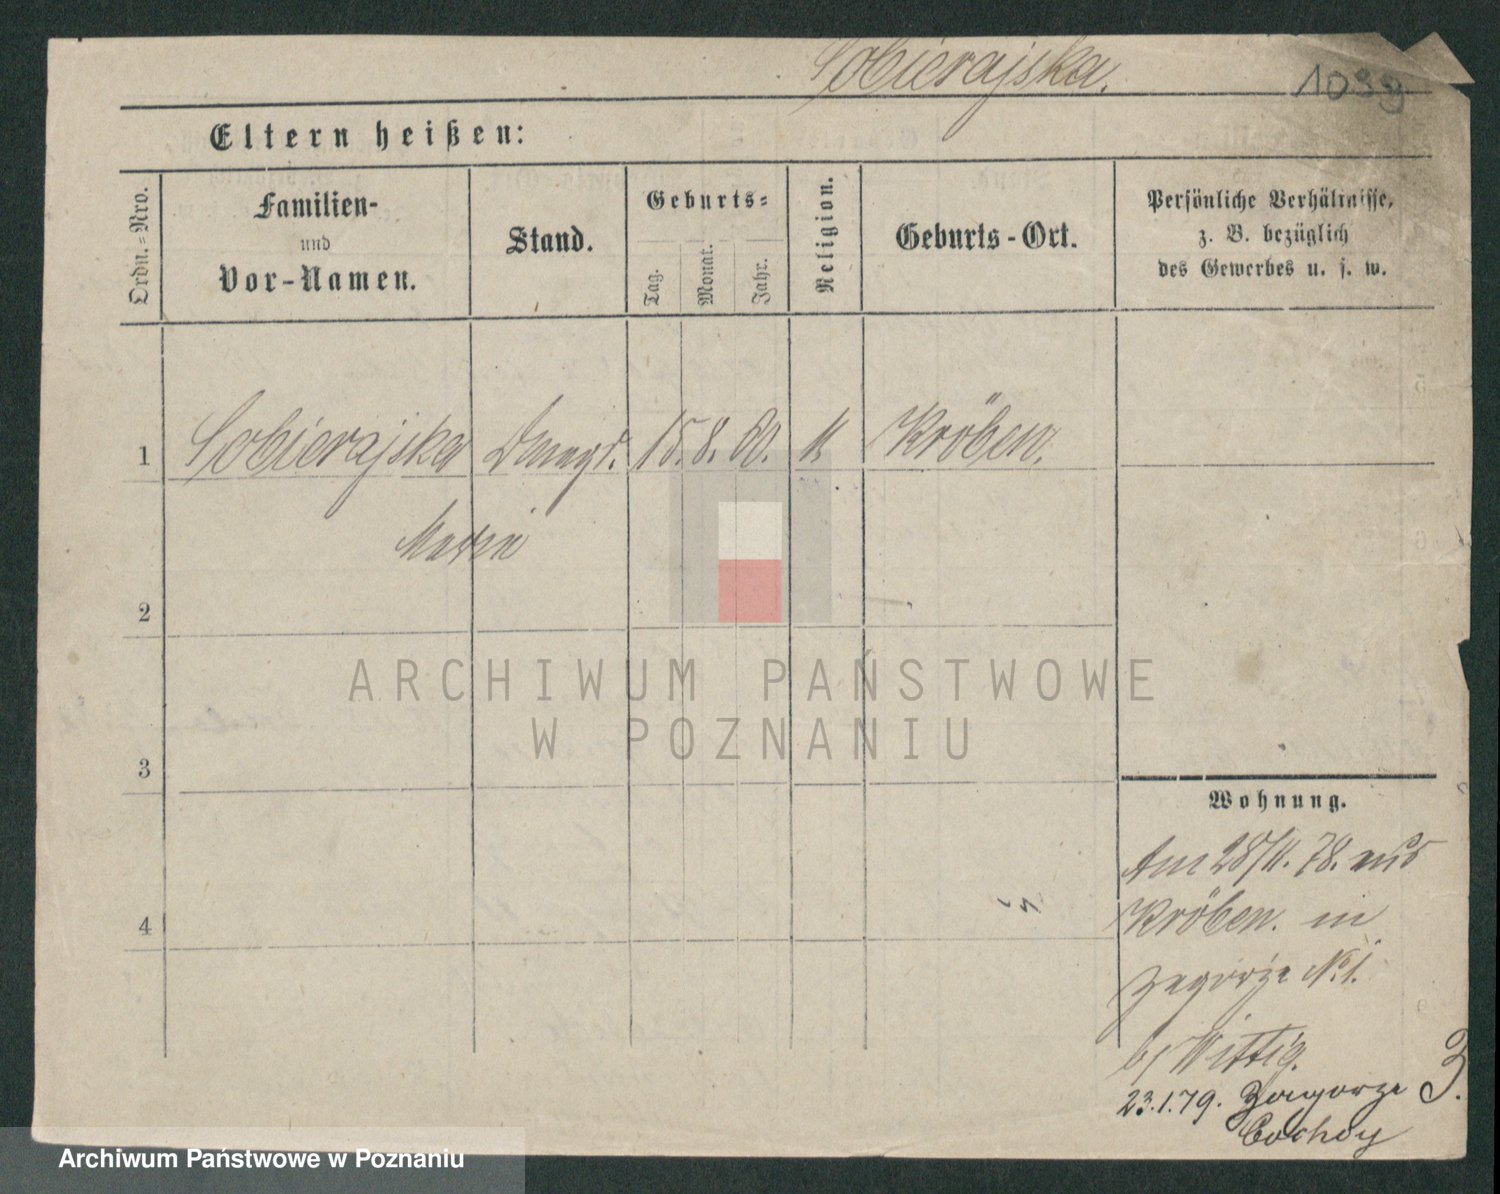 Sobierajska.
1099
Eltern heißen:
Ordn.=Nro.
Familien-
und
Vor-Namen.
Stand.
Geburts=
Tag.
Monat.
Jahr.
Religion.
Geburts-Ort.
Persönliche Verhältnisse,
z. B. bezüglich
des Gewerbes u. s. w.
1 Sobierajska 15. 8. 60. k. Kröben.
2
3
4
ARCHIWUM PAŃSTWOWE
W POZNANIU
Wohnung.
Am 28/11. 78. aus
Kröben. in
Zagórze No 1.
b/ Wittig.
23.1.79. Zagorze 3.
Archiwum Państwowe w Poznaniu